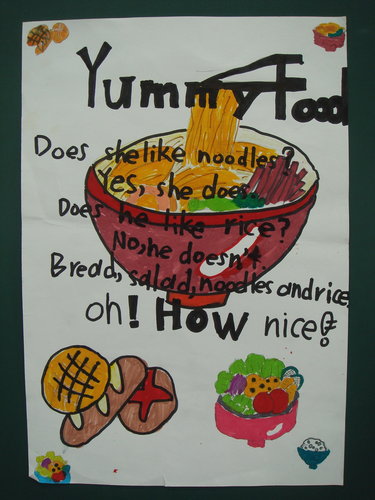 Yummy Food
Does she like noodles?
Yes, she does.
Does he like rice?
No, he doesn't.
Bread, salad, noodles and rice,
oh! How nice!